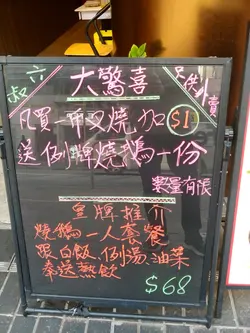 六叔
大驚喜
只供外賣
凡買一甫叉燒加$1
送例牌燒鵝一份
數量有限
皇牌推介
燒鵝一人套餐
跟白飯,例湯,油菜
奉送熱飲
$68